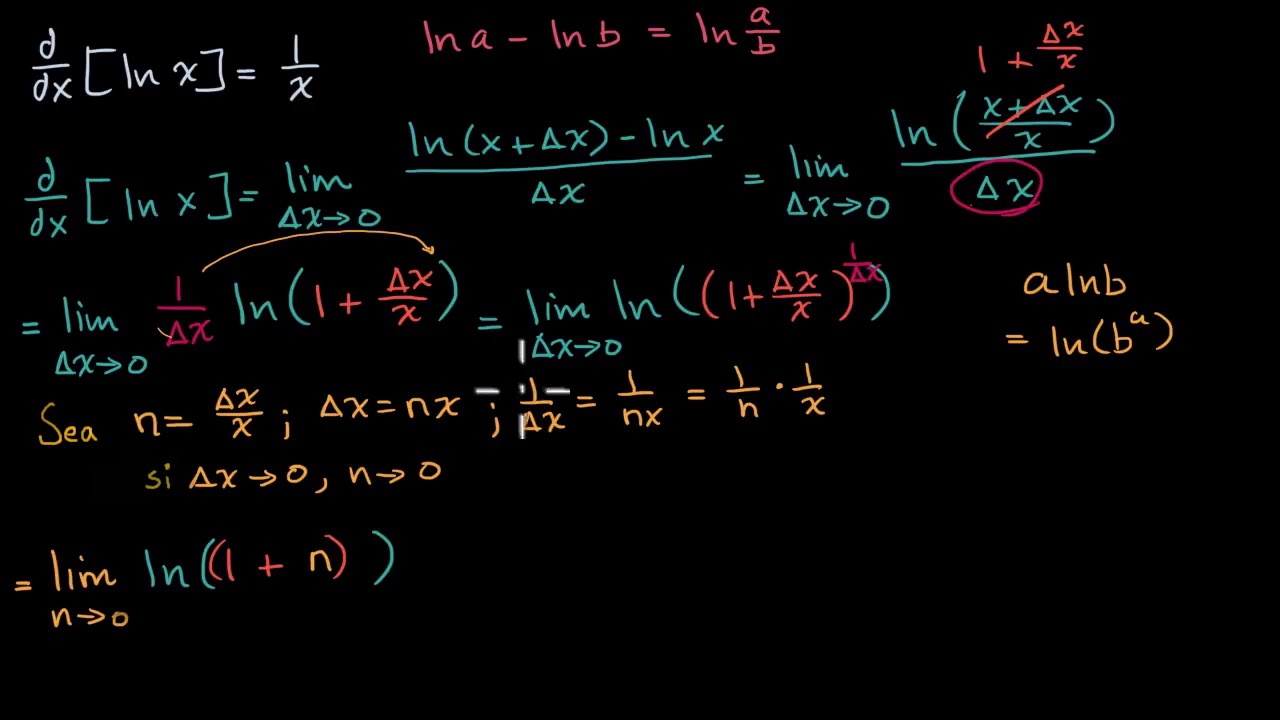 d/dx [ln x] = 1/x
ln a - ln b = ln a/b
1 + Δx/x
d/dx [ln x] = lim Δx→0 (ln(x+Δx) - ln x)/Δx = lim Δx→0 ln((x+Δx)/x)/Δx
= lim Δx→0 1/Δx ln(1 + Δx/x) = lim Δx→0 ln((1+Δx/x)^(1/Δx))
a ln b
= ln(b^a)
Sea n = Δx/x ; Δx = nx ; 1/Δx = 1/nx = 1/n · 1/x
si Δx→0, n→0
= lim n→0 ln((1 + n) )